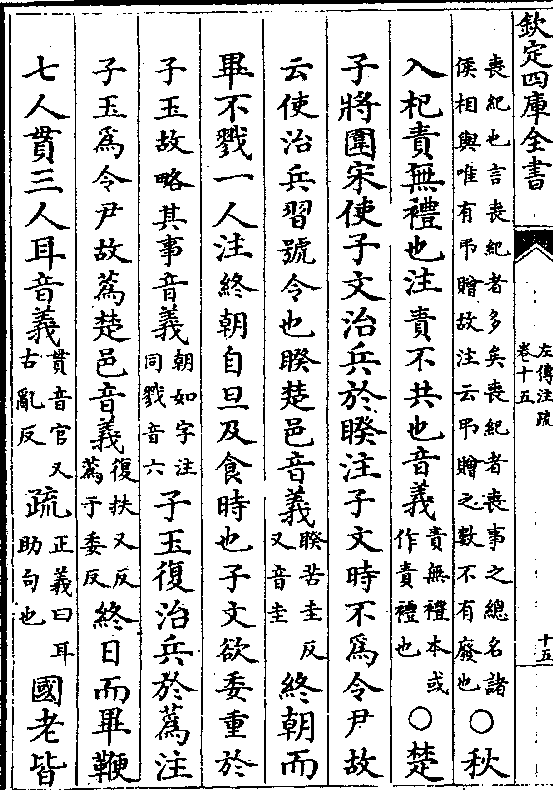 欽定四庫全書
左傳注疏
卷十五
十五
喪紀也言喪紀者多矣喪紀者喪事之總名諸
侯相與唯有弔贈故注云弔贈之數不有廢也
○秋
入杞責無禮也注責不共也音義
責無禮本或
作責禮也
○楚
子將圍宋使子文治兵於睽注子文時不爲令尹故
云使治兵習號令也睽楚邑音義
睽苦圭反
又音圭
終朝而
畢不戮一人注終朝自旦及食時也子文欲委重於
子玉故略其事音義
朝如字注
同戮音六
子玉復治兵於蒍注
子玉爲令尹故蒍楚邑音義
復扶又反
蒍于委反
終日而畢鞭
七人貫三人耳音義
貫音官又
古亂反
疏
正義曰耳
助句也
國老皆